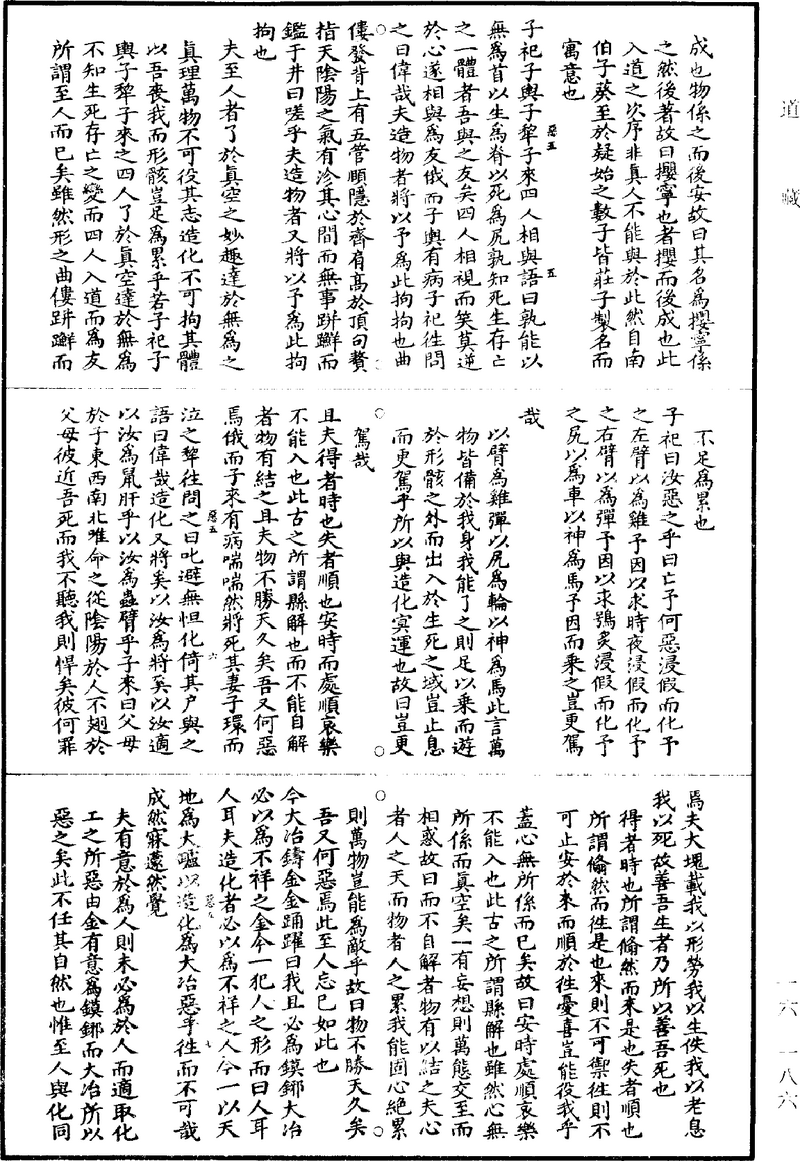 道藏
成也物係之而後安故曰其名爲攖寧係
之然後著故曰攖寧也者攖而後成也此
入道之次序非真人不能與於此然自南
伯子葵至於疑始之數子皆莊子製名而
寓意也
子祀子輿子犂子來四人相與語曰孰能以
無爲首以生爲脊以死爲尻孰知死生存亡
之一體者吾與之友矣四人相視而笑莫逆
於心遂相與爲友俄而子輿有病子祀往問
之曰偉哉夫造物者將以予爲此拘拘也曲
僂發背上有五管頤隱於齊肩高於頂句贅
指天陰陽之氣有沴其心間而無事跰𨇤而
鑑于井曰嗟乎夫造物者又將以予爲此拘
拘也
夫至人者了於真空之妙趣達於無爲之
真理萬物不可役其志造化不可拘其體
以吾喪我而形骸豈足爲累乎若子祀子
輿子犂子來之四人了於真空達於無爲
不知生死存亡之變而四人入道而爲友
所謂至人而已矣雖然形之曲僂跰𨇤而
不足爲累也
子祀曰汝惡之乎曰亡予何惡浸假而化予
之左臂以爲雞予因以求時夜浸假而化予
之右臂以爲彈予因以求鴞炙浸假而化予
之尻以爲車以神爲馬予因而乘之豈更駕
哉
以臂爲雞彈以尻爲輪以神爲馬此言萬
物皆備於我身我能了之則足以乘而遊
於形骸之外而出入於生死之域豈止息
而更駕乎所以與造化冥運也故曰豈更
駕哉
且夫得者時也失者順也安時而處順哀樂
不能入也此古之所謂縣解也而不能自解
者物有結之且夫物不勝天久矣吾又何惡
焉俄而子來有病喘喘然將死其妻子環而
泣之犂往問之曰叱避無怛化倚其户與之
語曰偉哉造化又將奚以汝爲將奚以汝適
以汝爲鼠肝乎以汝爲蟲臂乎子來曰父母
於子東西南北唯命之從陰陽於人不翅於
父母彼近吾死而我不聽我則悍矣彼何罪
焉夫大塊載我以形勞我以生佚我以老息
我以死故善吾生者乃所以善吾死也
得者時也所謂翛然而來是也失者順也
所謂翛然而往是也來則不可禦往則不
可止安於來而順於往憂喜豈能役我乎
蓋心無所係而已矣故曰安時處順哀樂
不能入也此古之所謂縣解也雖然心無
所係而真空矣一有妄想則萬態交至而
相惑故曰而不自解者物有以結之夫心
者人之天而物者人之累我能固心絶累
則萬物豈能爲敵乎故曰物不勝天久矣
吾又何惡焉此至人忘已如此也
今大冶鑄金金踊躍曰我且必爲鏌鋣大冶
必以爲不祥之金今一犯人之形而曰人耳
人耳夫造化者必以爲不祥之人今一以天
地爲大鑪以造化爲大冶惡乎往而不可哉
成然寐蘧然覺
夫有意於爲人則未必爲於人而適取化
工之所惡由金有意爲鏌鋣而大冶所以
惡之矣此不任其自然也惟至人與化同
一六—一八六